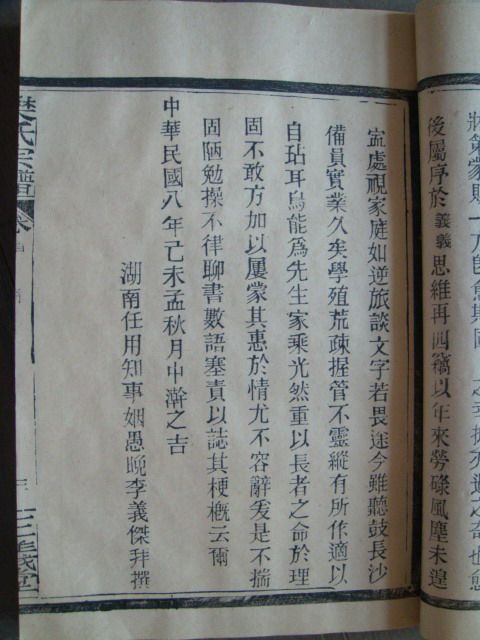 後屬序於義義思維再四竊以年來勞碌風塵未遑
寍處視家庭如逆旅談文字若畏途今雖聽鼓長沙
備員實業久矣學殖荒疎握管不靈縱有所作適以
自玷耳烏能為先生家乘光然重以長者之命於理
固不敢方加以屢蒙其惠於情尤不容辭爰是不揣
固陋勉操不律聊書數語塞責以誌其梗概云爾
中華民國八年己未孟秋月中澣之吉
湖南任用知事姻愚晚李義傑拜撰
樊氏宗譜
三義堂